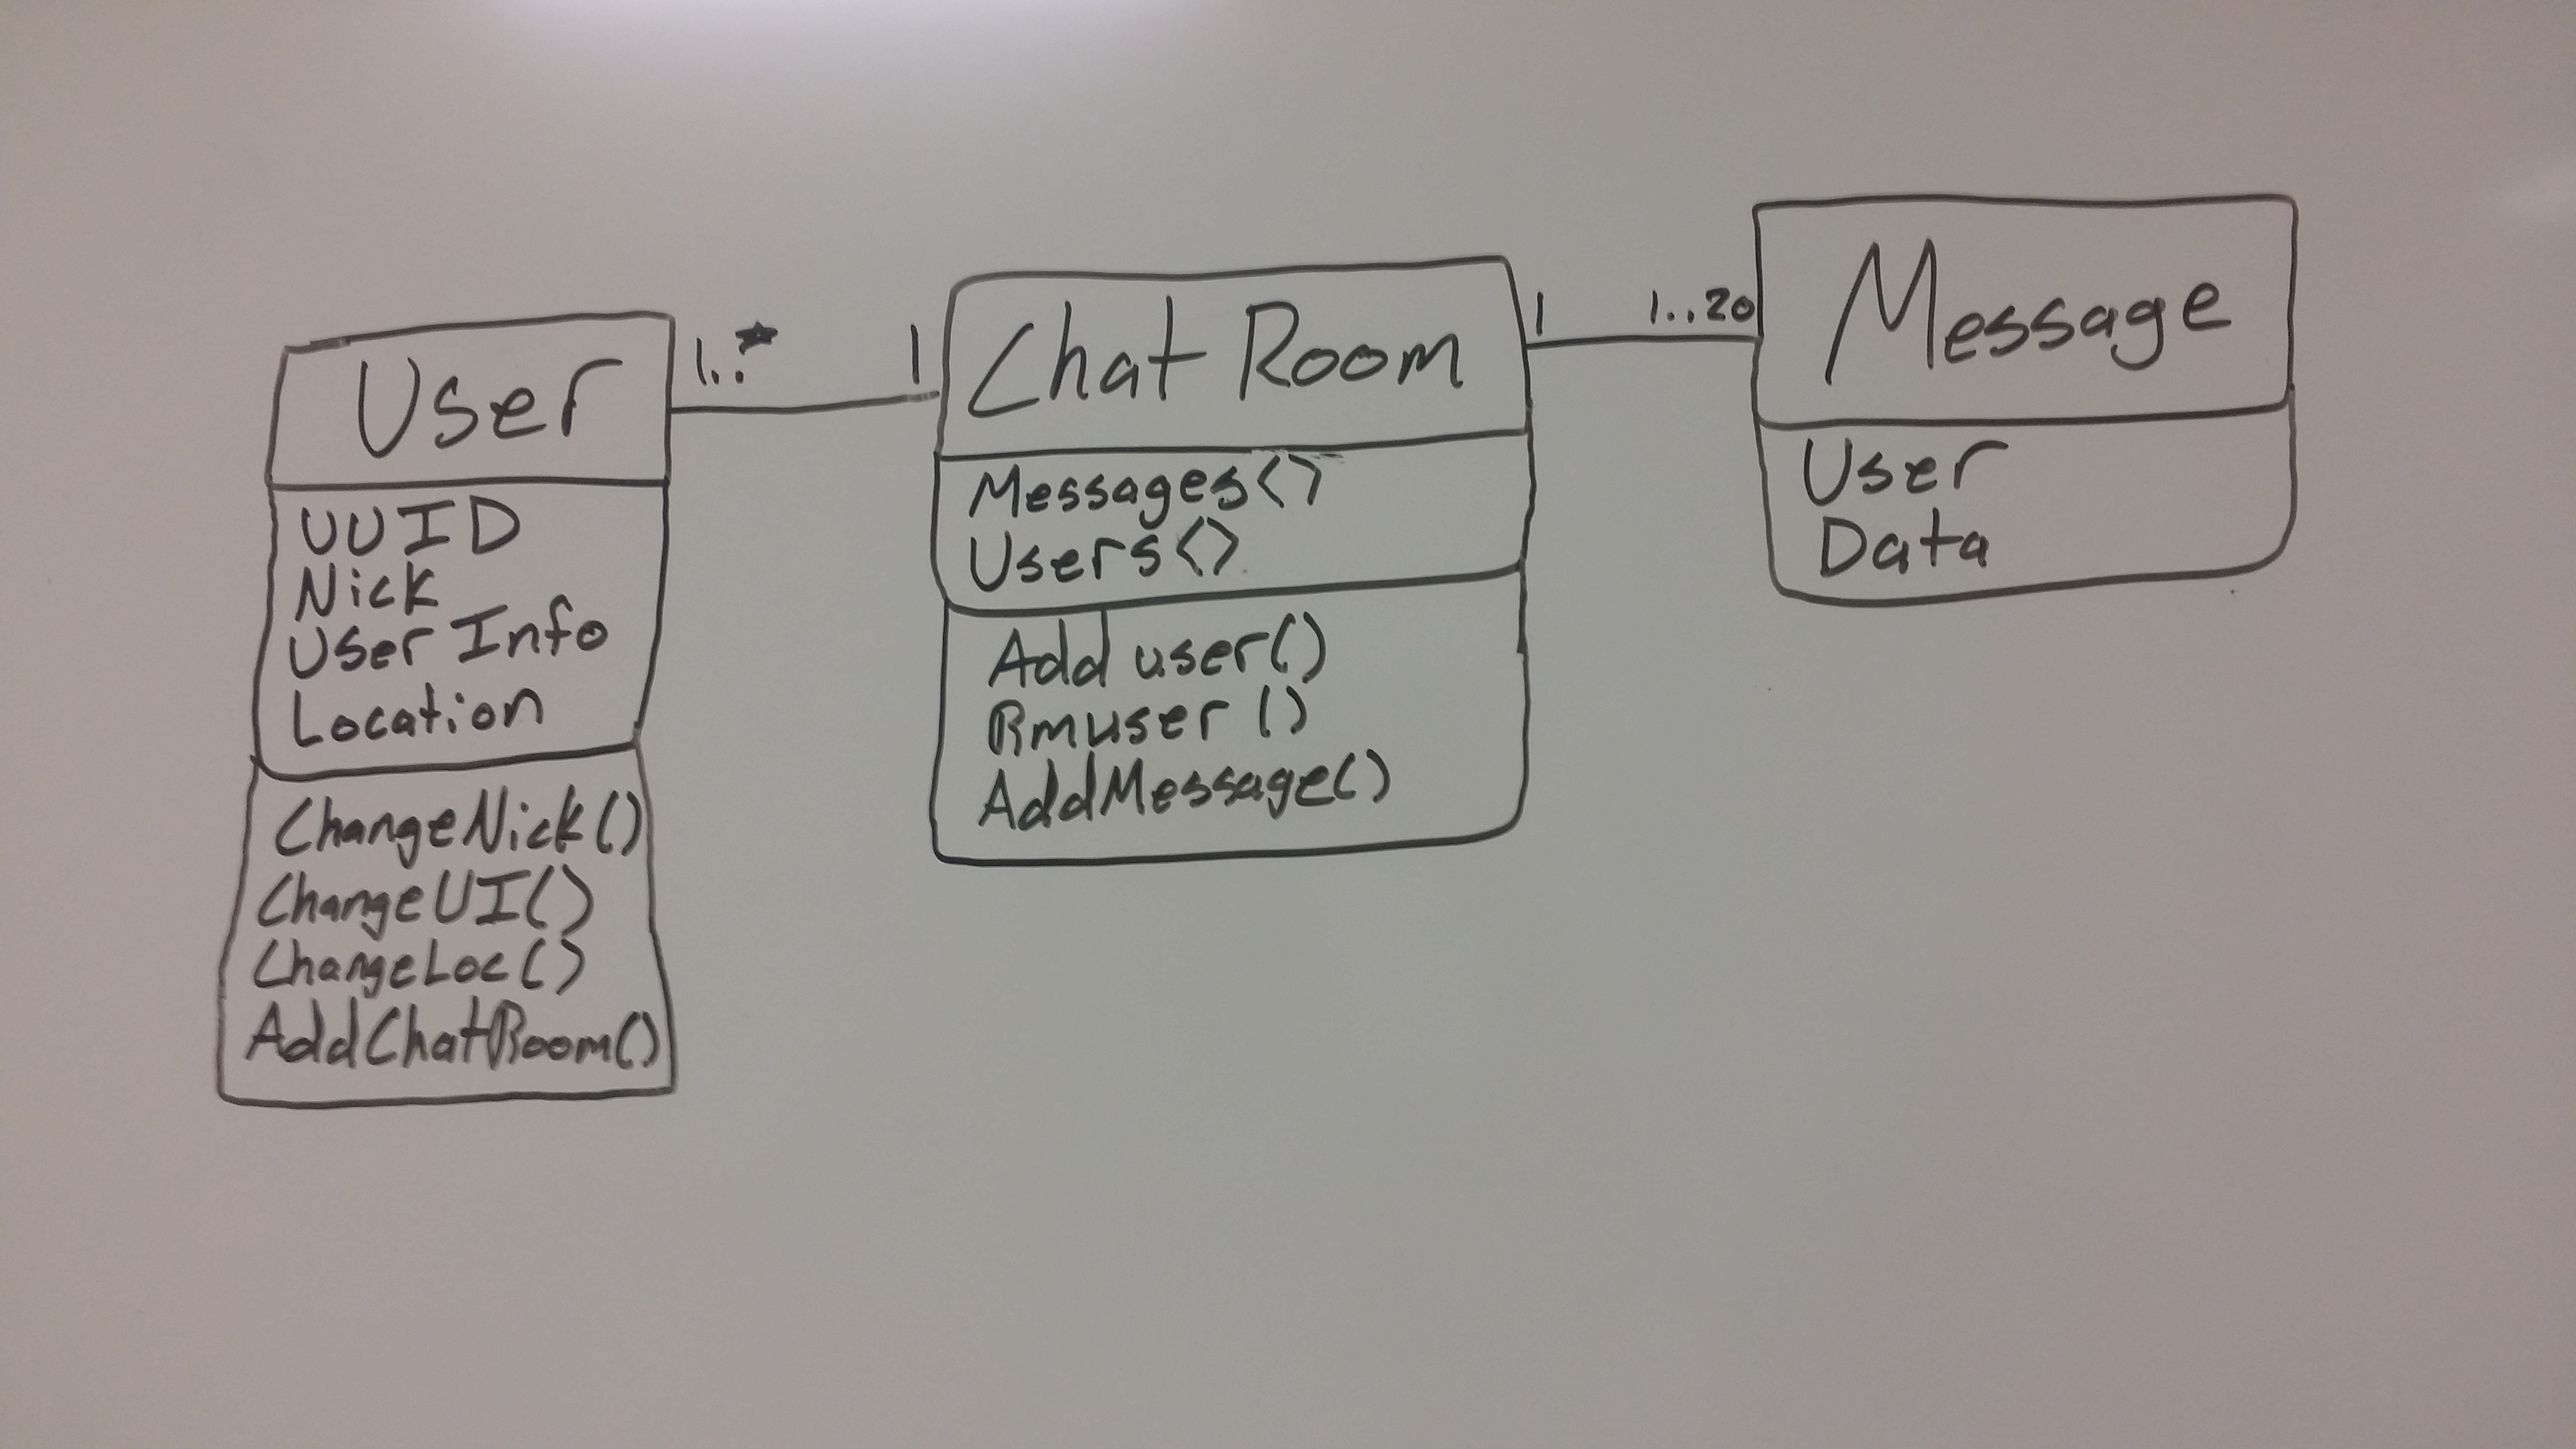 User
UUID
Nick
User Info
Location
ChangeNick()
ChangeUI()
ChangeLoc()
AddChatRoom()
1..*
1
Chat Room
Messages<>
Users<>
Add user()
Rmuser ()
AddMessage()
1
1..20
Message
User
Data